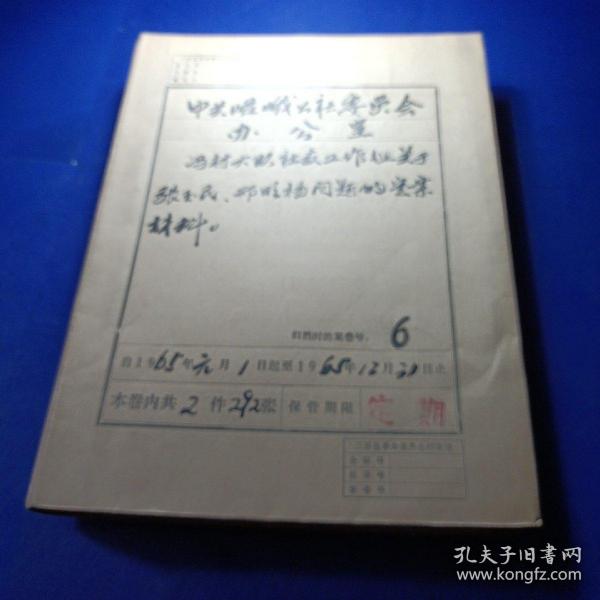 中共嵯峨公社委员会
办公室
冯村大队社教工作组关于
张玉民、邓明杨问题的定案
材料。
归档时的案卷号: 6
自1965年元月1日起至1965年12月31日止
本卷内共2件292张 保管期限 定期
全宗号
目录号
案卷号
孔夫子旧书网
www.kongfz.com